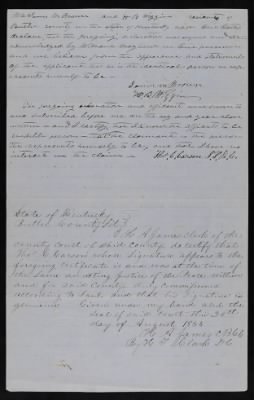 We James M Brown and H B Wiggins residents of
Butler county in the state of Kentucky upon our oaths
declare that the foregoing declaration was signed and
acknowledged by in our presence
and we believe from the appearance and statements
of the applicant that he is the identical person he
represents himself to be
James M Brown
H. B. Wiggins
The foregoing declaration and affidavit was sworn to
and subscribed before me on the day and year above
written and I certify
credible persons that the claimant is the person
he represents himself to be, and that I have no
interest in the claim Thos. C. Carson J.P.B.C.
State of Kentucky
Butler County Sct
I H A James clerk of the
County Court of said County do certify that
Thos C Carson whose signature appears to the
foregoing certificate is and was at the time of
the same an acting Justice of the Peace within
and for said County duly commissioned
according to law and that his signature is
genuine. Given under my hand and the
seal of said court this 30th
day of August 1856
H. A. James CBCC
By H. T. Clark DC